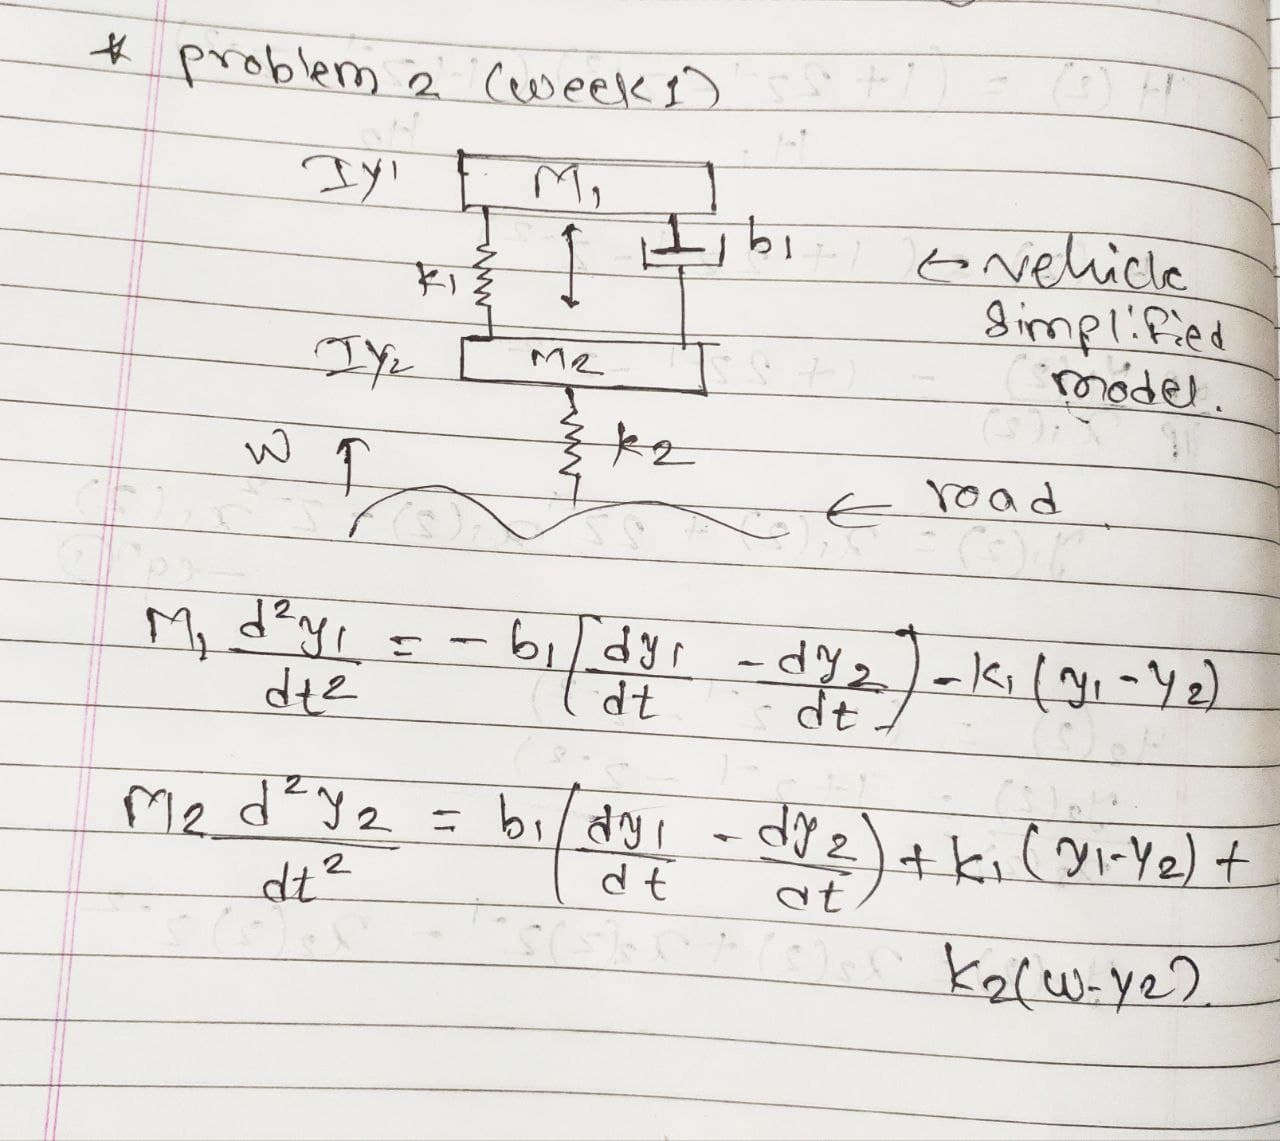 * problem 2 (week 1)
Iy1 M1
k1 b1 ← vehicle
simplified
Iy2 M2 model.
W ↑ k2
← road
M1 d²y1/dt² = - b1(dy1/dt - dy2/dt) - k1(y1-y2)
M2 d²y2/dt² = b1(dy1/dt - dy2/dt) + k1(y1-y2) +
k2(w-y2).